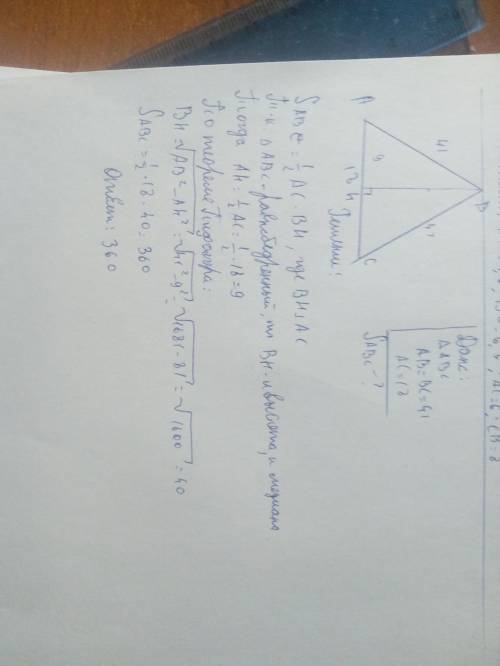 AC=6, CB=8
Дано:
△ABC
AB=BC=41
AC=18
S ABC - ?
B
41
41
A
9
18
H
C
Решение:
S ABC = 1/2 AC · BH, где BH⊥AC
Т.к △ABC-равнобедренный, то BH-и высота, и медиана
Тогда AH = 1/2 AC = 1/2 · 18 = 9
По теореме Пифагора:
BH = √AB²-AH² = √41²-9² = √1681-81 = √1600 = 40
S ABC = 1/2 · 18 · 40 = 360
Ответ: 360